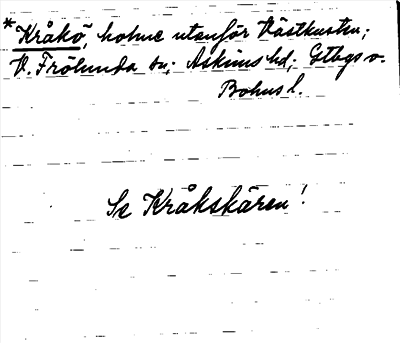 *Kråkö, holme utanför Västkusten;
V. Frölunda sn; Askims hd; Gtbgs o.
Bohusl.
Se Kråkskären!